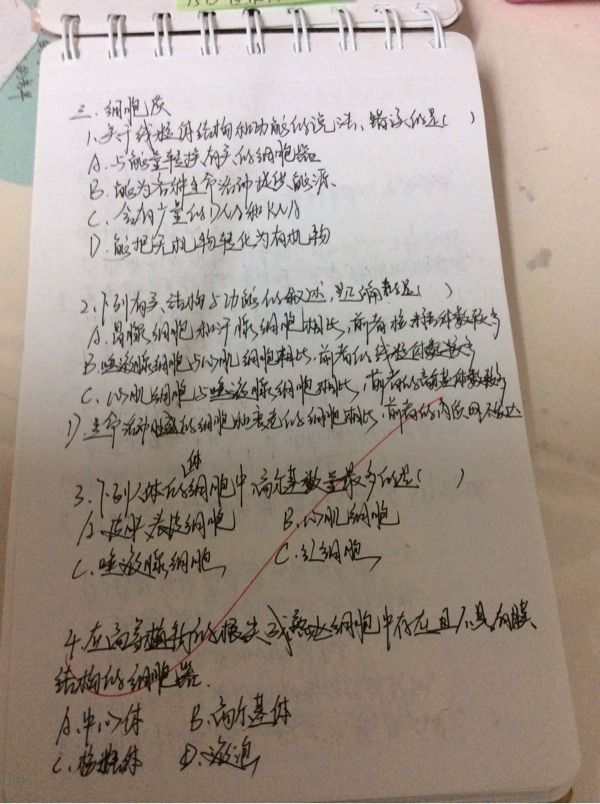 三、细胞质
1、关于线粒体结构和功能的说法、错误的是( )
A. 与能量转换有关的细胞器
B. 能为各种生命活动提供能源
C. 含有少量的DNA和RNA
D. 能把无机物转化为有机物
2、下列有关结构与功能的叙述,正确的是( )
A. 胃腺细胞和汗腺细胞相比,前者核糖体数较多
B. 唾液腺细胞与心肌细胞相比,前者的线粒体数较多
C. 心肌细胞与唾液腺细胞相比,前者的高基体数较多
D. 生命活动旺盛的细胞和衰老的细胞相比,前者的内质网不发达
体
3、下列人体的细胞中高尔基数量最多的是( )
A. 皮肤表皮细胞 B. 心肌细胞
C. 唾液腺细胞 C. 红细胞
4. 在高等植物的根尖成熟区细胞中存在且不具有膜
结构的细胞器.
A. 中心体 B. 高尔基体
C. 核糖体 D. 液泡